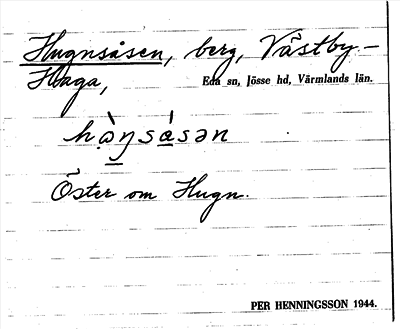 Hugnsåsen, berg, Västby-
Haga,
Eda sn, Jösse hd, Värmlands län.
Öster om Hugn.
PER HENNINGSSON 1944.